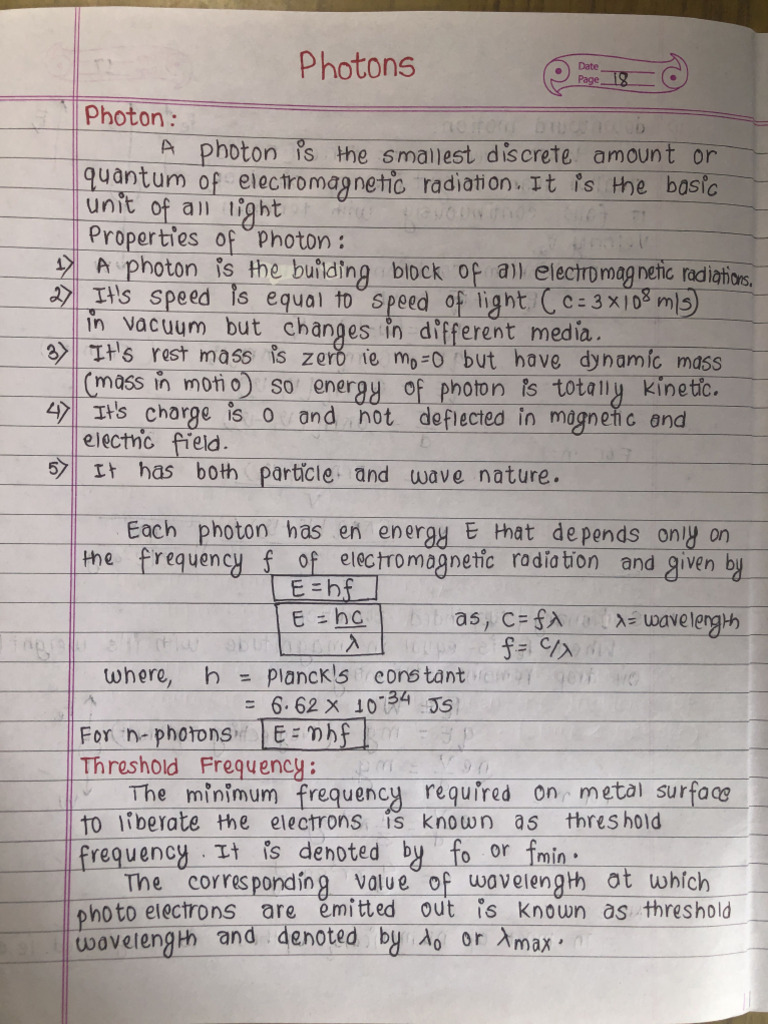 Photons
Date
Page 18
Photon:
A photon is the smallest discrete amount or
quantum of electromagnetic radiation. It is the basic
unit of all light
Properties of Photon:
1) A photon is the building block of all electromagnetic radiations.
2) It's speed is equal to speed of light (c=3×10⁸ m/s)
in vacuum but changes in different media.
3) It's rest mass is zero ie m₀=0 but have dynamic mass
(mass in motio) so energy of photon is totally kinetic.
4) It's charge is 0 and not deflected in magnetic and
electric field.
5) It has both particle and wave nature.
Each photon has en energy E that depends only on
the frequency f of electromagnetic radiation and given by
E=hf
E = hc/λ as, c=fλ λ=wavelength
f=c/λ
where, h = planck's constant
= 6.62 × 10⁻³⁴ Js
For n-photons E=nhf
Threshold Frequency:
The minimum frequency required on metal surface
to liberate the electrons is known as threshold
frequency. It is denoted by f₀ or fmin.
The corresponding value of wavelength at which
photo electrons are emitted out is known as threshold
wavelength and denoted by λ₀ or λmax.